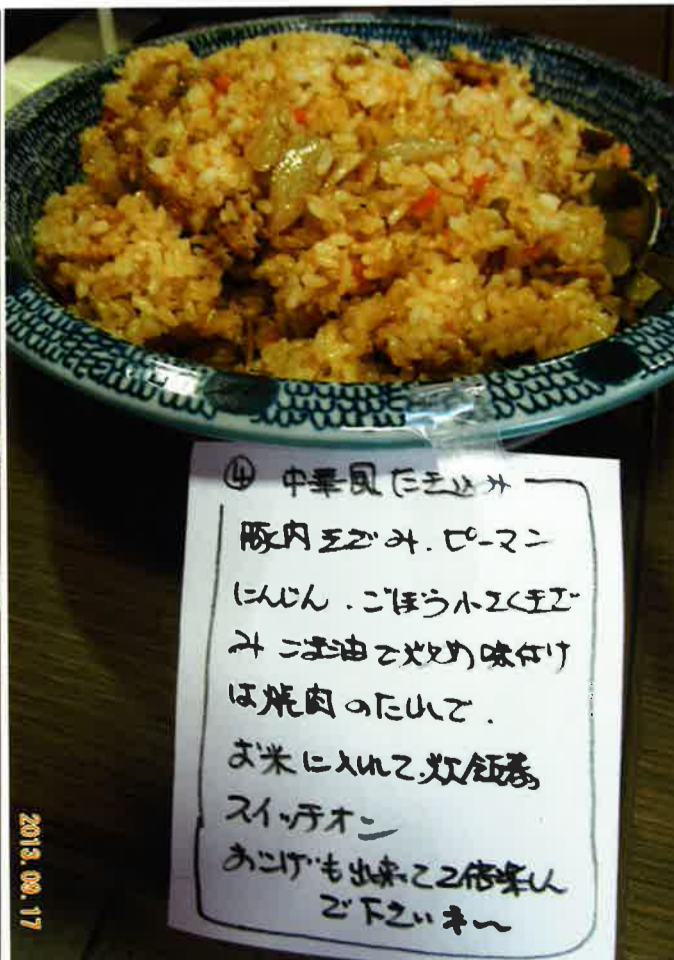 ④ 中華風たき込み
豚肉きざみ、ピーマン
にんじん、ごぼう小さくきざ
み ごま油で炒め味付け
は焼肉のたれで、
お米に入れて、炊飯器
スイッチオン
おこげも出来て2倍楽しん
で下さいネ〜
2013.09.17